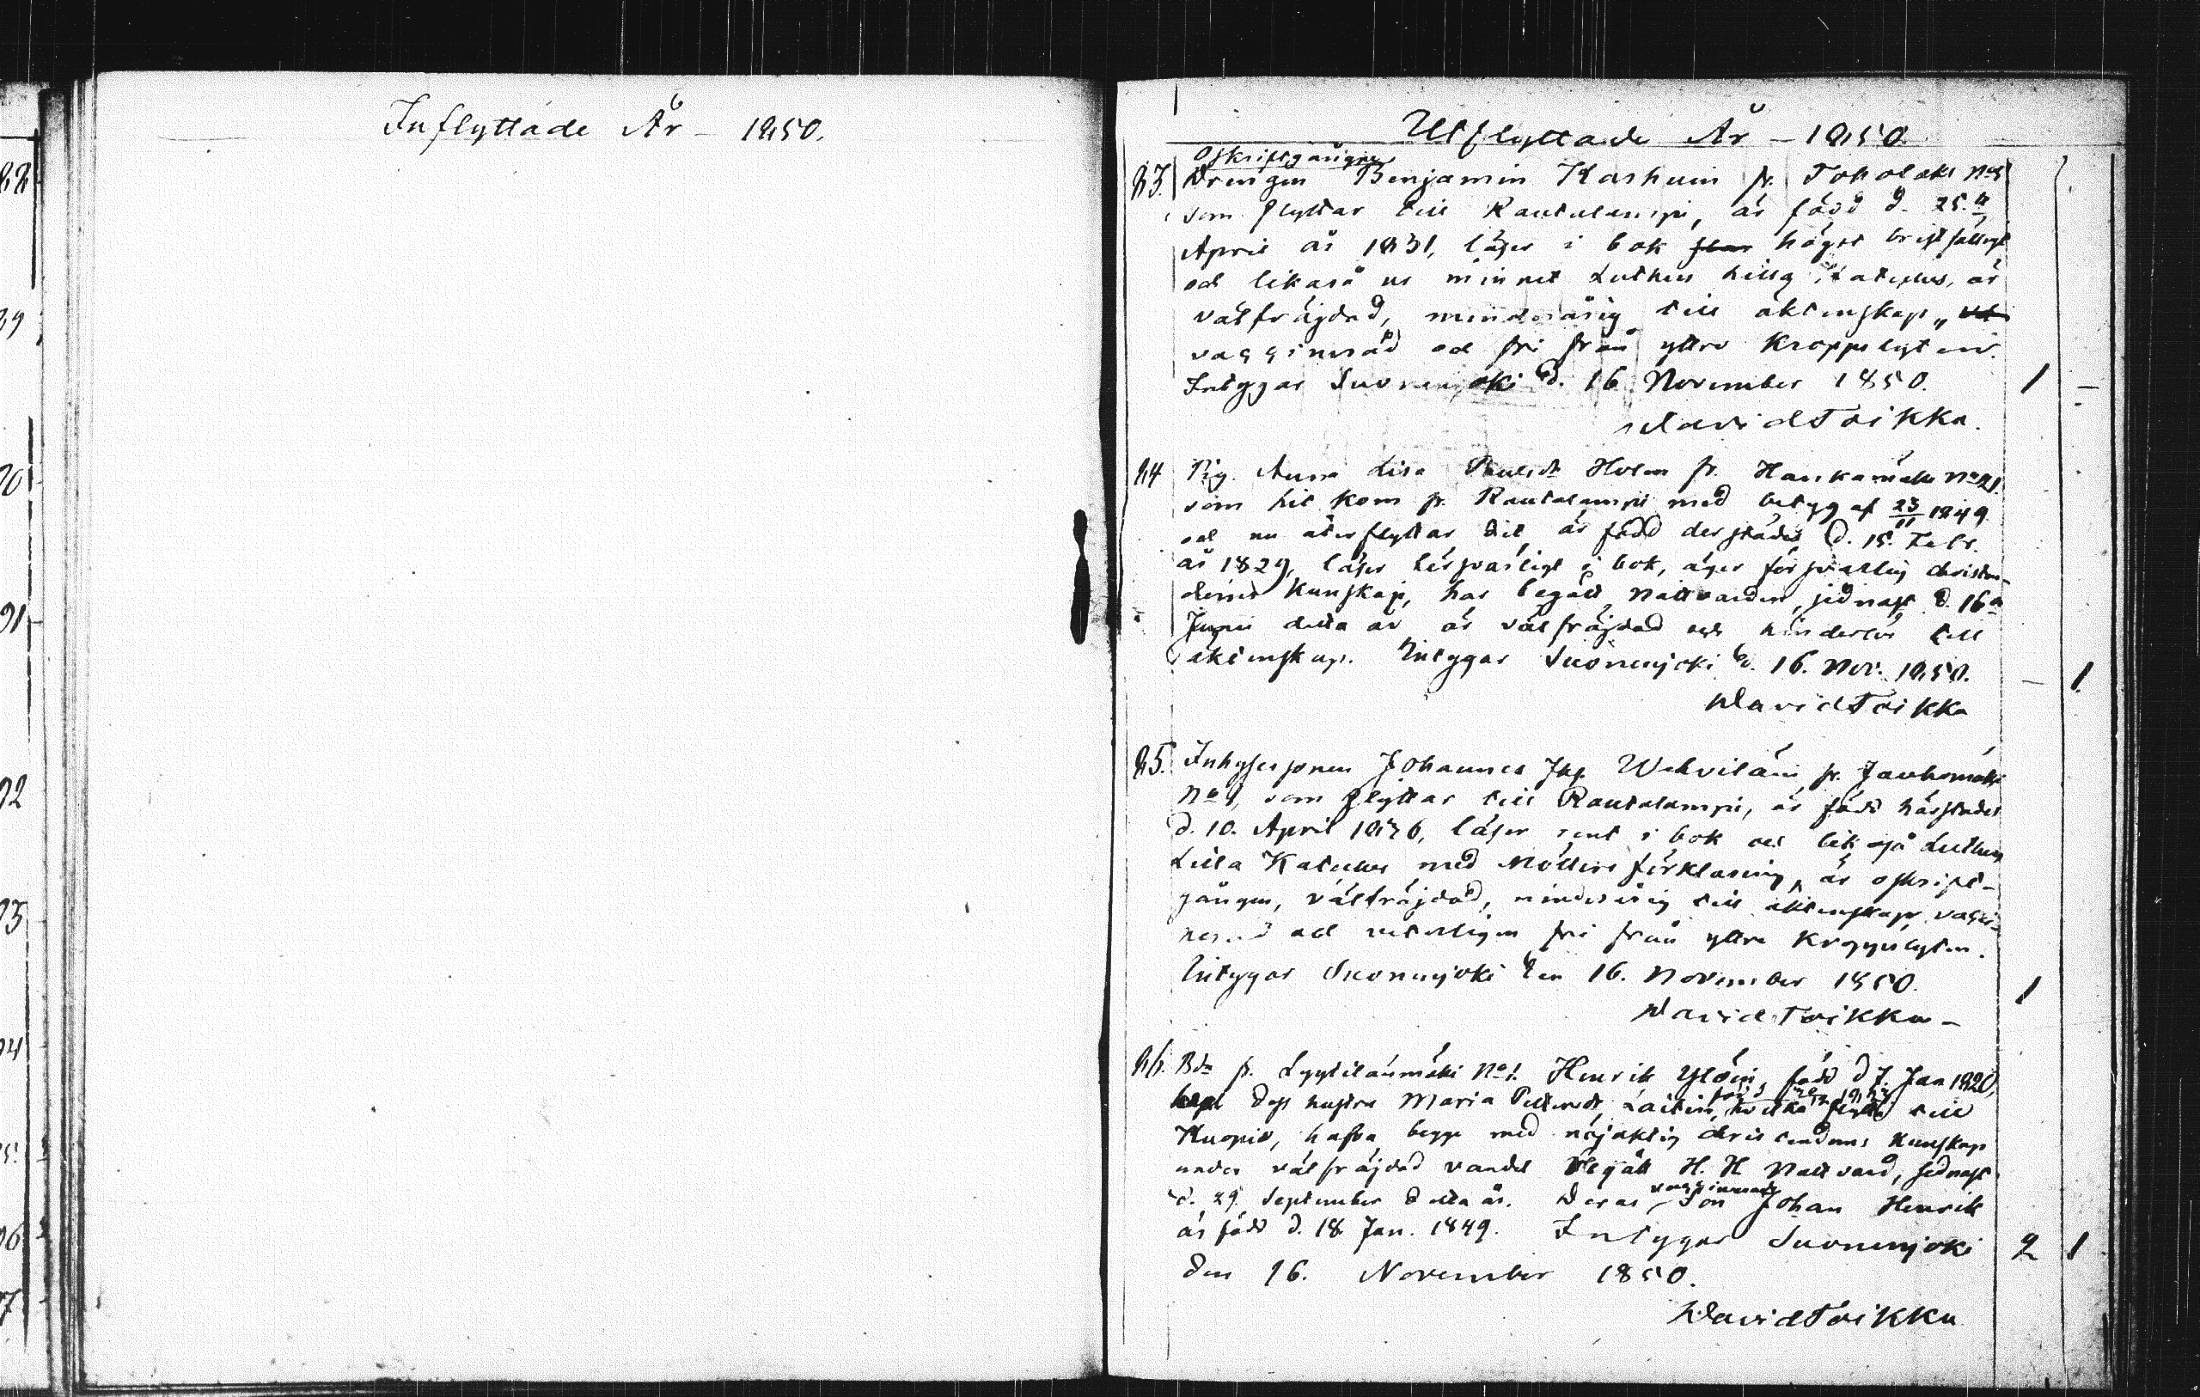 Inflyttade År - 1850.
Utflyttade År - 1850.
Oskriftgångne
83. Drengen Benjamin Karhuin fr. Toholaks No 5
som flyttar till Rautalampi, är född d. 25.
April år 1831, läser i bok högst bristfälligt
och likaså ur minnet Luthers lilla Cateches, är
välfräjdad, minderårig till äktenskap,
vaccinerad och fri från yttre kroppslyten.
Intygar Suonenjoki d. 16 November 1850. 1 -
David Toikka.
84 Pig. Anna Lisa Paulsdr Holm fr. Haukamäki No 21.
som hit kom fr. Rautalampi med betyg af 23/11 1849
och nu återflyttar dit, är född derstädes d. 15. Febr.
år 1829, läser försvarligt i bok, äger försvarlig christen-
doms kunskap, har begått nattvarden sednast d. 16
Junii detta år är välfräjdad och hinderlös till
äktenskap. Intygar Suonenjoki d. 16. Nov. 1850. - 1
David Toikka
85. Inhysessonen Johannes Jsp. Wehviläin fr. Jauhomäki
No 1, som flyttar till Rautalampi, är född härstädes
d. 10. April 1836, läser rent i bok och likaså Luthers
Lilla Kateches med Möllers förklaring, är oskrift-
gången, välfräjdad, minderårig till äktenskap, vacci-
nerad och veterligen fri från yttre kroppslyten.
Intygar Suonenjoki den 16. November 1850. 1
David Toikka -
86. Bdn fr. Lyytilänmäki No 1. Henrik Ylöin, född d 7. Jan 1820,
dess hustru Maria Pettersdr Laitin, hvilka flytta till
Kuopio, hafva begge med nöjaktig christendoms kunskap
under välfräjdad vandel begått H. H. Nattvard, sednast
d. 29. September detta år. Deras vaccinerade Son Johan Henrik
är född d. 18 Jan. 1849. Intygar Suonenjoki 2 1
den 16. November 1850.
David Toikka